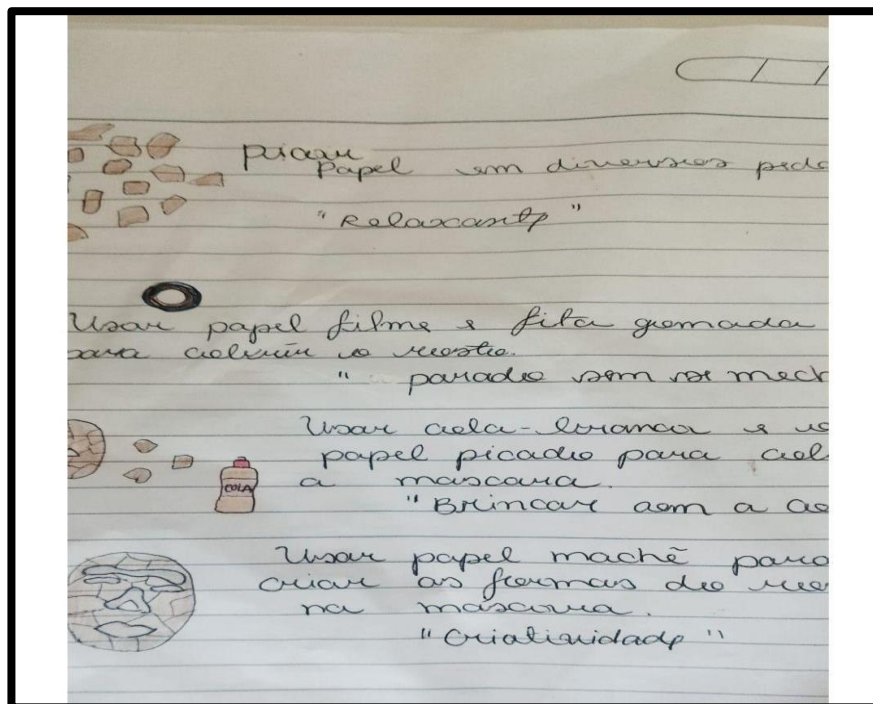 picar
Papel em diversos peda
"Relaxante"
Usar papel filme e fita gomada
para cobrir o rosto.
" parado sem se mech
Usar cola-branca e o
papel picado para col
COLA
a mascara.
"Brincar com a co
Usar papel machê para
criar as formas do ros
na máscara.
"Criatividade"